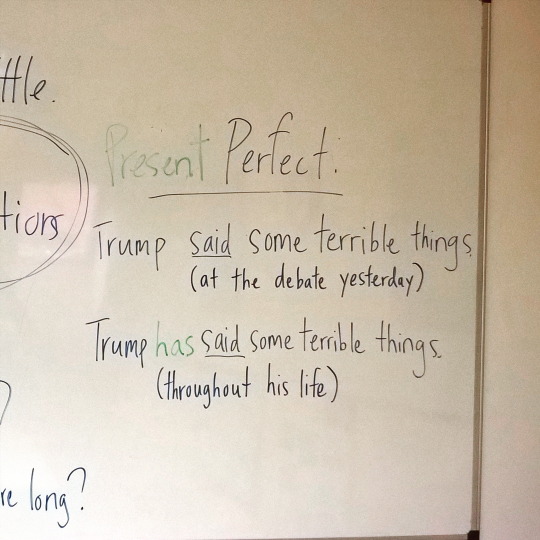 ttle.
Present Perfect:
tions
Trump said some terrible things.
(at the debate yesterday)
Trump has said some terrible things.
(throughout his life)
re long?